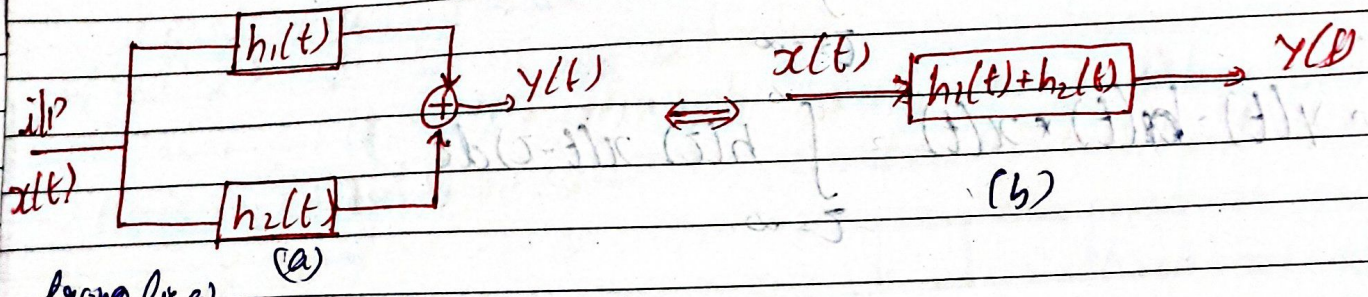 h₁(t)
i/p
x(t)
h₂(t)
y(t)
(a)
x(t)
h₁(t)+h₂(t)
y(t)
(b)